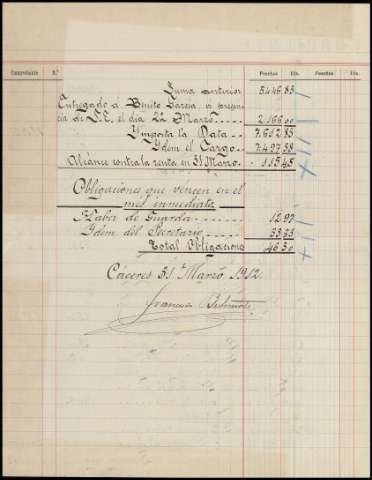 Comprobante N.º Pesetas Cts. Pesetas Cts.
Suma anterior 5446 85
Entregado á Benito García, á presen
cia de S.E. el día 22 Marzo 2166 00
Ymporta la Data 7.612 85
Ydem el Cargo 7.497 38
Alcance contra la renta en 31 Marzo 115 45
Obligaciones que vencen en el
mes inmediato
Haber de Guarda 12 97
Ydem del Secretario 33 33
Total Obligaciones 46 30
Cáceres 31 Marzo 1912.